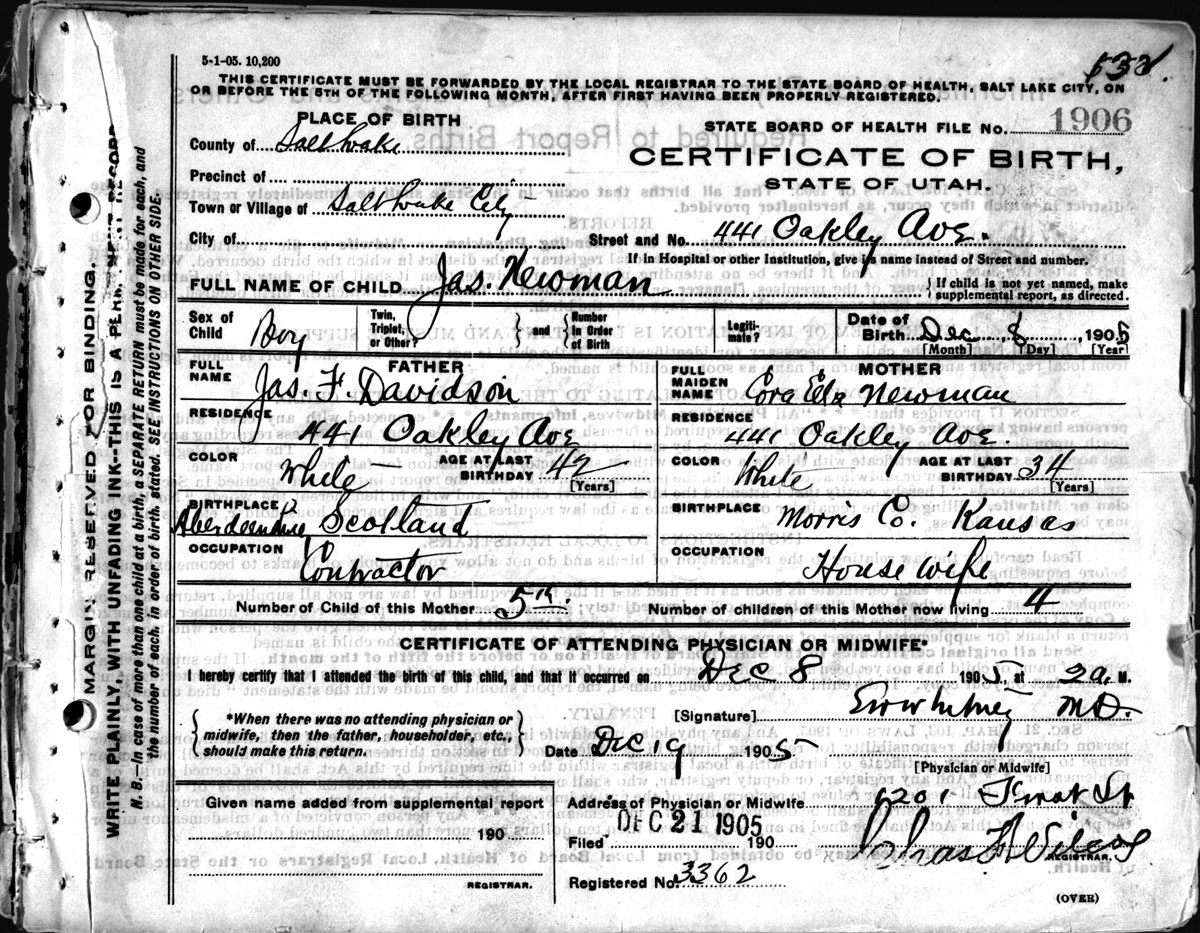 5-1-05. 10,200
THIS CERTIFICATE MUST BE FORWARDED BY THE LOCAL REGISTRAR TO THE STATE BOARD OF HEALTH, SALT LAKE CITY, ON
OR BEFORE THE 5TH OF THE FOLLOWING MONTH, AFTER FIRST HAVING BEEN PROPERLY REGISTERED.
PLACE OF BIRTH
STATE BOARD OF HEALTH FILE NO. 1906
County of Salt Lake
CERTIFICATE OF BIRTH,
Precinct of
STATE OF UTAH.
Town or Village of Salt Lake City
City of
Street and No. 441 Oakley Ave.
If in Hospital or other Institution, give its name instead of Street and number.
FULL NAME OF CHILD Jas. Newman
If child is not yet named, make
supplemental report, as directed.
Sex of Child Boy
Twin, Triplet, or Other?
and
Number In Order of Birth
Legitimate?
Date of Birth Dec 8 1905
[Month] [Day] [Year]
FATHER
FULL NAME Jas. F. Davidson
RESIDENCE
441 Oakley Ave
COLOR White
AGE AT LAST BIRTHDAY 42
[Years]
BIRTHPLACE
Scotland
OCCUPATION
Contractor
MOTHER
FULL MAIDEN NAME Cora Newman
RESIDENCE
441 Oakley Ave.
COLOR White
AGE AT LAST BIRTHDAY 34
[Years]
BIRTHPLACE Morris Co. Kansas
OCCUPATION
House wife
Number of Child of this Mother 5th.
Number of children of this Mother now living 4
CERTIFICATE OF ATTENDING PHYSICIAN OR MIDWIFE*
I hereby certify that I attended the birth of this child, and that it occurred on Dec 8 1905, at 2 a. M.
*When there was no attending physician or
midwife, then the father, householder, etc.,
should make this return.
[Signature] Whitney M.D.
Date Dec 19 1905
[Physician or Midwife]
Given name added from supplemental report
190
REGISTRAR.
Address of Physician or Midwife
Filed DEC 21 1905 190
REGISTRAR.
Registered No. 3362
(OVER)
MARGIN RESERVED FOR BINDING.
WRITE PLAINLY, WITH UNFADING INK--THIS IS A PERMANENT RECORD
N. B.--In case of more than one child at a birth, a SEPARATE RETURN must be made for each, and
the number of each, in order of birth, stated. SEE INSTRUCTIONS ON OTHER SIDE.